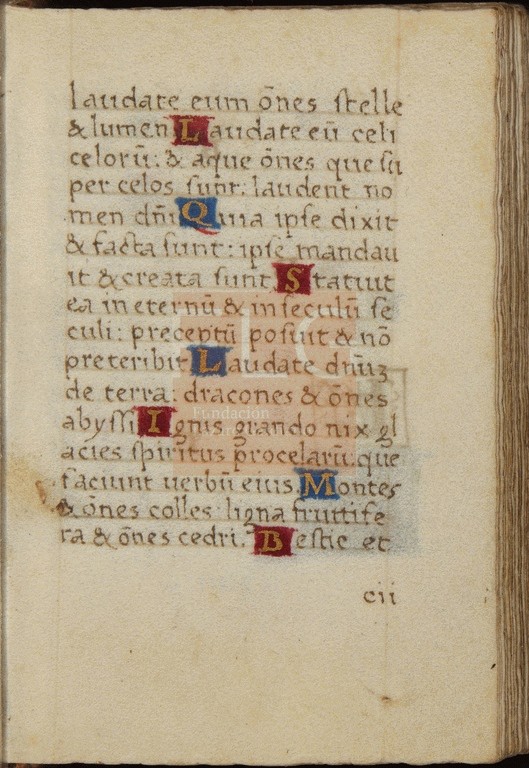 laudate eum õnes stelle
& lumen Laudate eũ celi
celorũ: & aque õnes que su
per celos sunt: laudent no
men dñi Quia ipse dixit
& facta sunt: ipse mandau
it & creata sunt Statuit
ea in eternũ & in seculũ se
culi: preceptũ posuit & nõ
preteribit Laudate dñuʒ
de terra: dracones & õnes
abyssi Ignis grando nix gl
acies spiritus procelarũ: que
faciunt uerbũ eius. Montes
& õnes colles: ligna fruttife
ra & õnes cedri. Bestie et
cii
Fundación